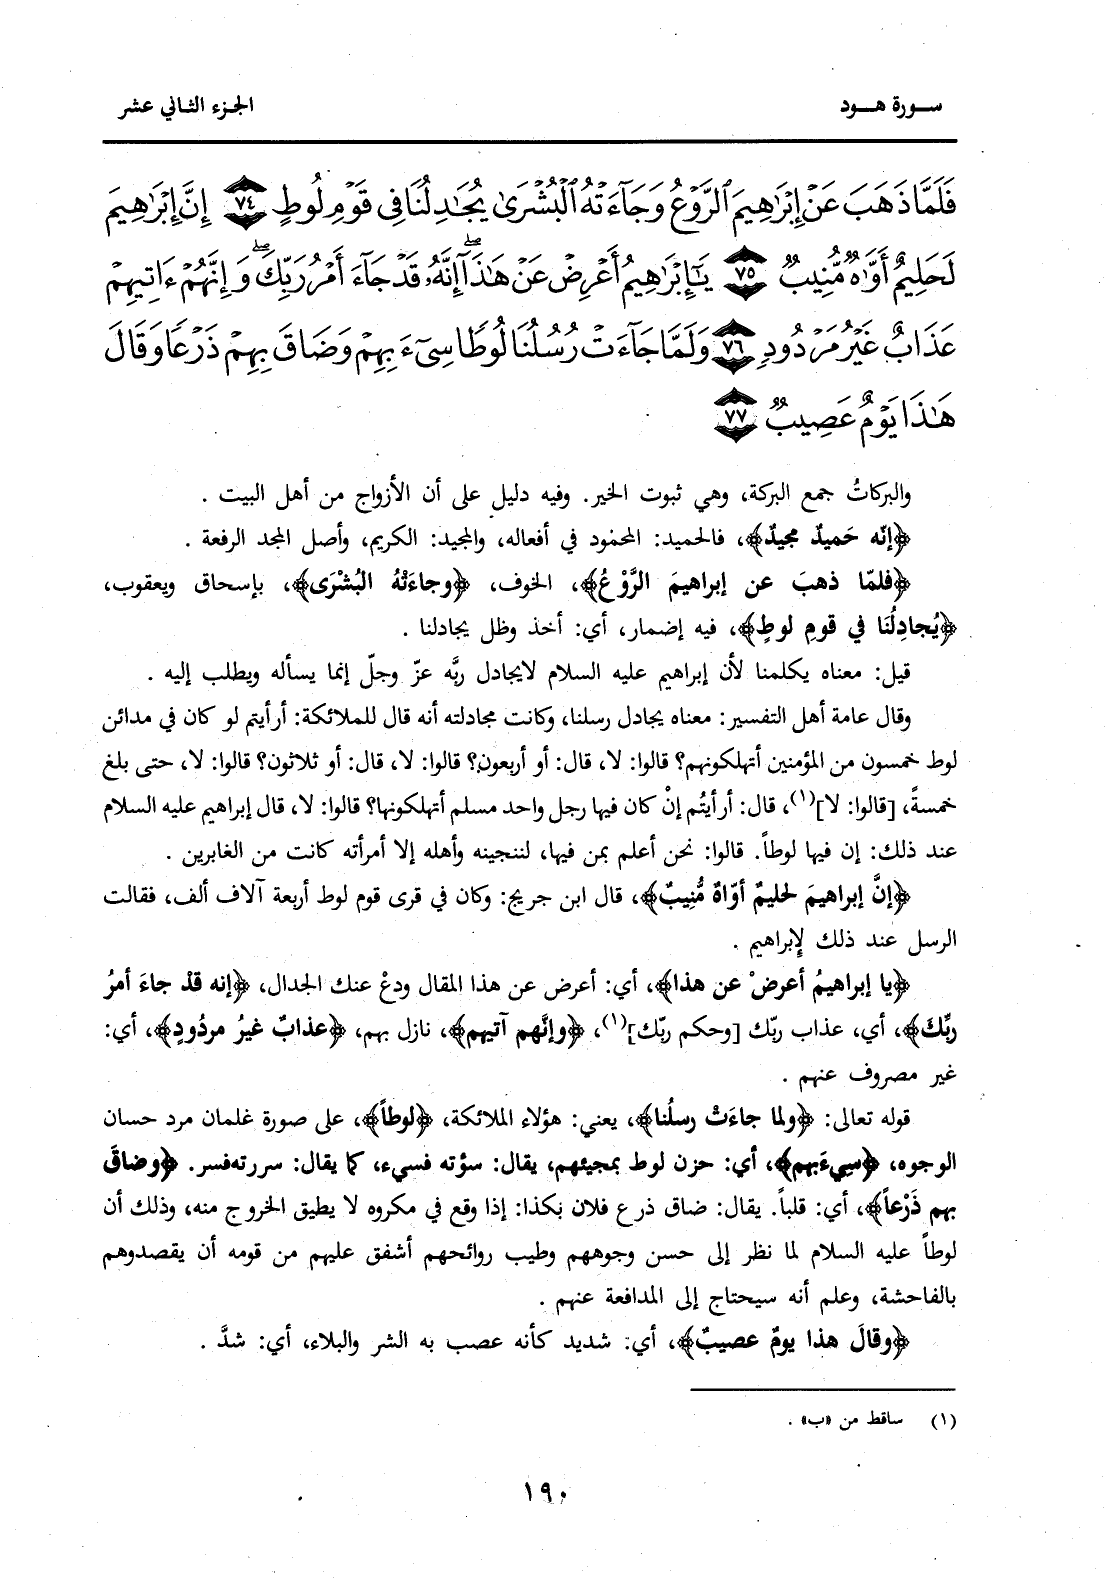 سـورة هـود
الجـزء الثـاني عشر
فَلَمَّا ذَهَبَ عَنْ إِبْرَٰهِيمَ ٱلرَّوْعُ وَجَآءَتْهُ ٱلْبُشْرَىٰ يُجَٰدِلُنَا فِى قَوْمِ لُوطٍ ٧٤ إِنَّ إِبْرَٰهِيمَ
لَحَلِيمٌ أَوَّٰهٌ مُّنِيبٌ ٧٥ يَٰٓإِبْرَٰهِيمُ أَعْرِضْ عَنْ هَٰذَآ إِنَّهُۥ قَدْ جَآءَ أَمْرُ رَبِّكَ وَإِنَّهُمْ ءَاتِيهِمْ
عَذَابٌ غَيْرُ مَرْدُودٍ ٧٦ وَلَمَّا جَآءَتْ رُسُلُنَا لُوطًا سِىٓءَ بِهِمْ وَضَاقَ بِهِمْ ذَرْعًا وَقَالَ
هَٰذَا يَوْمٌ عَصِيبٌ ٧٧
والبركاتُ جمع البركة، وهي ثبوت الخير. وفيه دليل على أن الأزواج من أهل البيت .
﴿إنّه حَميدٌ مجيدٌ﴾، فالحميد: المحمود في أفعاله، والمجيد: الكريم، وأصل المجد الرفعة .
﴿فلمّا ذهبَ عن إبراهيمَ الرَّوْعُ﴾، الخوف، ﴿وجاءَتْهُ البُشْرَى﴾، بإسحاق ويعقوب،
﴿يُجادِلُنَا في قومِ لوطٍ﴾، فيه إضمار، أي: أخذ وظل يجادلنا .
قيل: معناه يكلمنا لأن إبراهيم عليه السلام لايجادل ربَّه عزّ وجلّ إنما يسأله ويطلب إليه .
وقال عامة أهل التفسير: معناه يجادل رسلنا، وكانت مجادلته أنه قال للملائكة: أرأيتم لو كان في مدائن
لوط خمسون من المؤمنين أتهلكونهم؟ قالوا: لا، قال: أو أربعون؟ قالوا: لا، قال: أو ثلاثون؟ قالوا: لا، حتى بلغ
خمسةً، [قالوا: لا](١)، قال: أرأيتُم إنْ كان فيها رجل واحد مسلم أتهلكونها؟ قالوا: لا، قال إبراهيم عليه السلام
عند ذلك: إن فيها لوطاً. قالوا: نحن أعلم بمن فيها، لننجينه وأهله إلا أمرأته كانت من الغابرين .
﴿إنَّ إبراهيمَ لحليمٌ أوّاهٌ مُّنِيبٌ﴾، قال ابن جريج: وكان في قرى قوم لوط أربعة آلاف ألف، فقالت
الرسل عند ذلك لإبراهيم .
﴿يا إبراهيمُ أعرضْ عن هذا﴾، أي: أعرض عن هذا المقال ودعْ عنك الجدال، ﴿إنه قدْ جاءَ أمرُ
ربِّكَ﴾، أي، عذاب ربّك [وحكم ربّك](١)، ﴿وإنَّهم آتيهم﴾، نازل بهم، ﴿عذابٌ غيرُ مردُودٍ﴾، أي:
غير مصروف عنهم .
قوله تعالى: ﴿ولما جاءَتْ رسلُنا﴾، يعني: هؤلاء الملائكة، ﴿لوطاً﴾، على صورة غلمان مرد حسان
الوجوه، ﴿سِيءَبهم﴾، أي: حزن لوط بمجيئهم، يقال: سؤته فسيء، كما يقال: سررته‌فسر. ﴿وضاقَ
بهم ذَرْعاً﴾، أي: قلباً. يقال: ضاق ذرع فلان بكذا: إذا وقع في مكروه لا يطيق الخروج منه، وذلك أن
لوطاً عليه السلام لما نظر إلى حسن وجوههم وطيب روائحهم أشفق عليهم من قومه أن يقصدوهم
بالفاحشة، وعلم أنه سيحتاج إلى المدافعة عنهم .
﴿وقالَ هذا يومٌ عصيبٌ﴾، أي: شديد كأنه عصب به الشر والبلاء، أي: شدَّ .
(١) ساقط من «ب» .
١٩٠